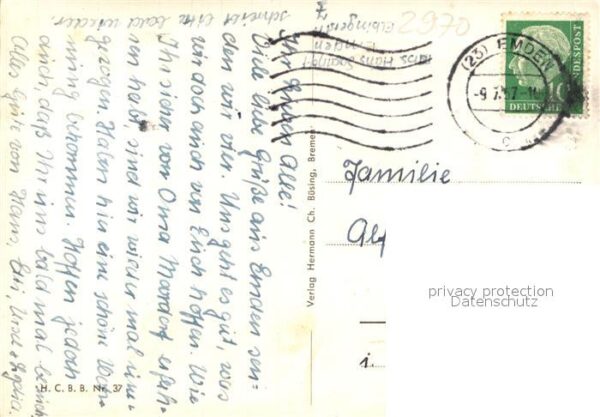 Ihr Lieben Alle!
Viele liebe Grüße aus Emden sen-
den wir vier. Uns geht es gut, was
wir doch auch von Euch hoffen. Wie
Ihr sicher von Oma Mardorf erfah-
ren habt, sind wir wieder mal um-
gezogen. Haben hier eine schöne Woh-
nung bekommen. Hoffen jedoch
auch, daß Ihr uns bald mal besucht
Alles Gute von Hans,
schreibt bitte bald wieder.
2970
Emden
H. C. B. B. Nr. 37
Verlag Hermann Ch. Büsing, Bremen
(23) EMDEN
-9.7.57-
c
10
DEUTSCHE
BUNDESPOST
Familie
privacy protection
Datenschutz
i.